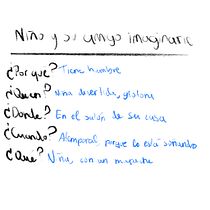 Niño y su amigo imaginario
¿Por que? Tiene hambre
¿Quien? Niña divertida, glotona
¿Donde? En el salón de su casa
¿Cuando? Atemporal, porque lo está soñando
¿Qué? Niña, con un mapache